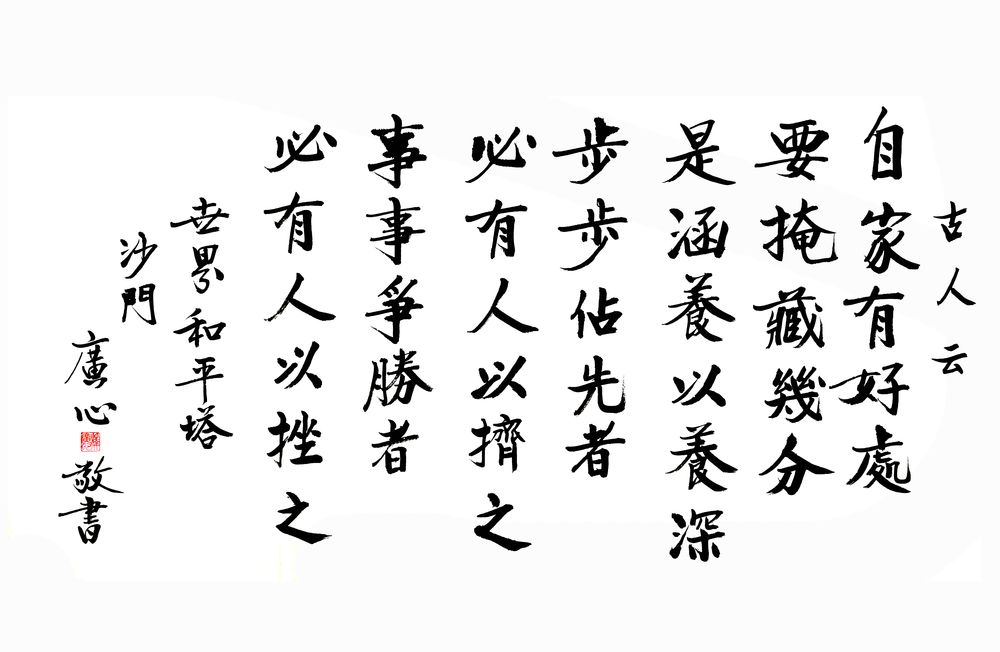 古人云
自家有好處
要掩藏幾分
是涵養以養深
步步佔先者
必有人以擠之
事事爭勝者
必有人以挫之
世界和平塔
沙門
廣心
敬書